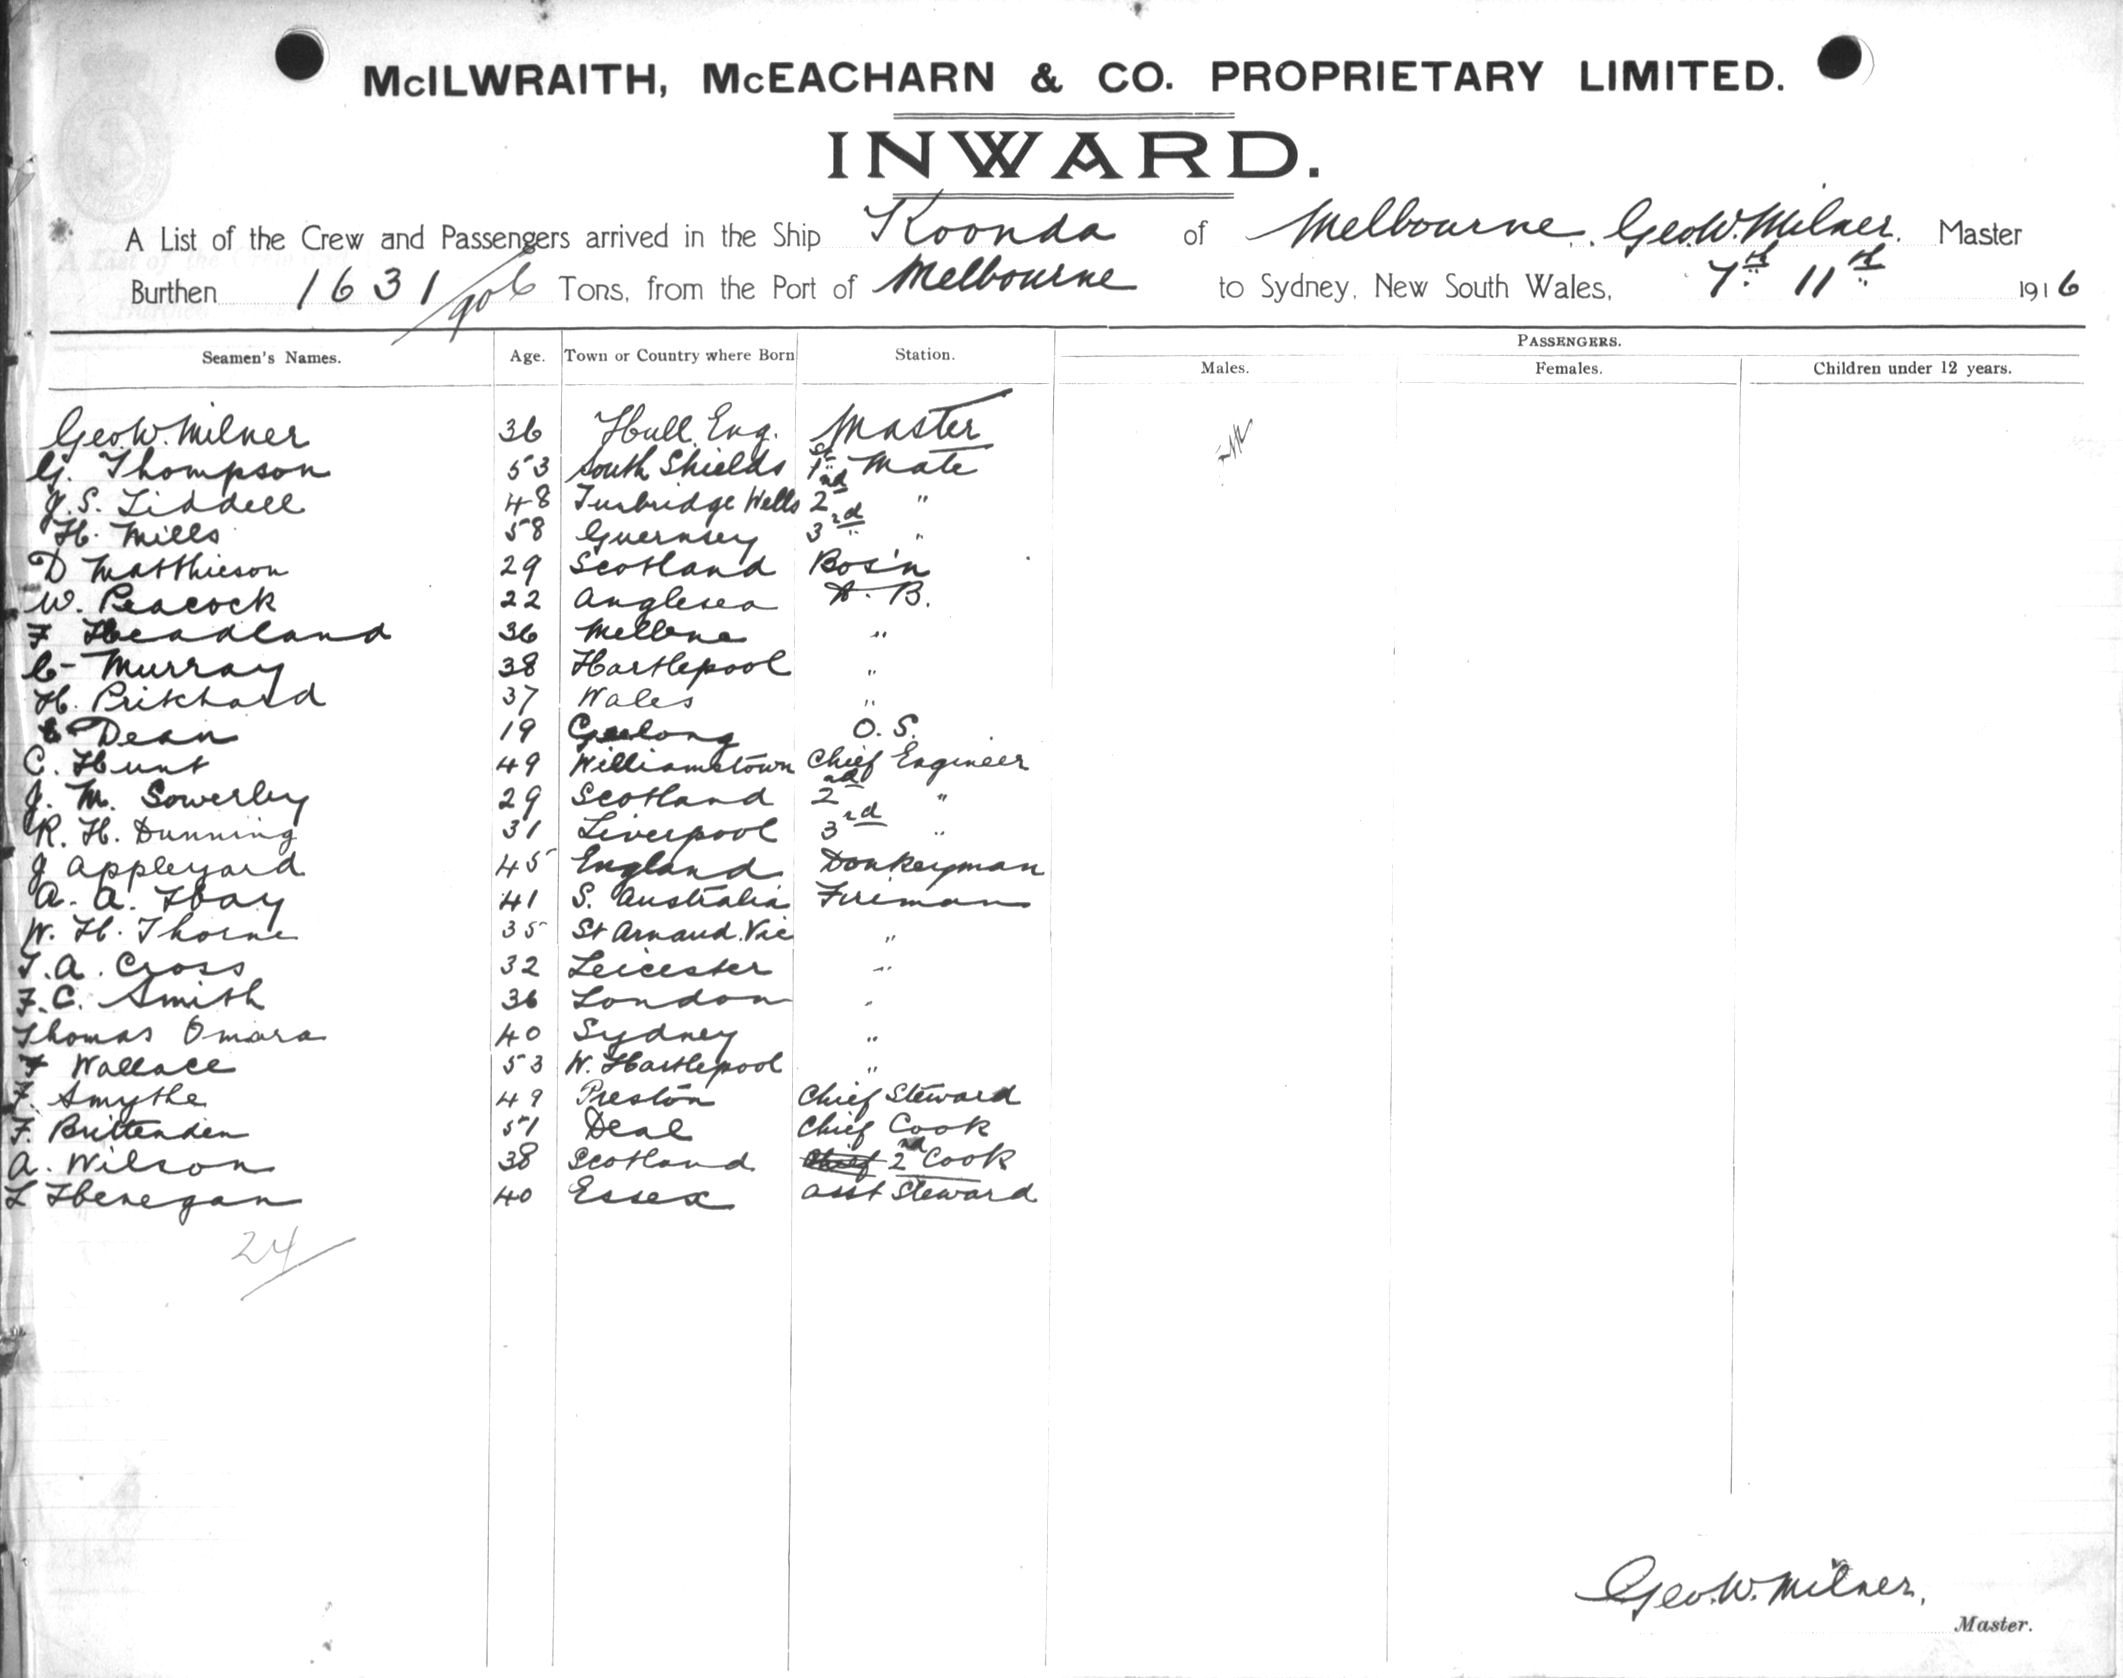 McILWRAITH, McEACHARN & CO. PROPRIETARY LIMITED.
INWARD.
A List of the Crew and Passengers arrived in the Ship Koonda of Melbourne, Geo. W. Milner. Master
Burthen 1631/906 Tons, from the Port of Melbourne to Sydney, New South Wales, 7th 11th 1916
PASSENGERS.
Seamen's Names. Age. Town or Country where Born Station. Males. Females. Children under 12 years.
Geo. W. Milner 36 Hull. Eng. Master
G. Thompson 53 South Shields 1st Mate
J. S. Liddell 48 Tunbridge Wells 2nd "
H. Mills 58 Guernsey 3rd "
D Matthieson 29 Scotland Bos'n
W. Peacock 22 Anglesea A. B.
F Headland 36 Melbne "
C- Murray 38 Hartlepool "
H. Pritchard 37 Wales "
Dean 19 Geelong O. S.
C. Hunt 49 Williamstown Chief Engineer
J. M. Sowerby 29 Scotland 2nd "
R. H. Dunning 31 Liverpool 3rd "
J Appleyard 45 England Donkeyman
A. A. Hay 41 S. Australia Fireman
W. H. Thorne 35 St Arnaud. Vic "
T. A. Cross 32 Leicester "
F. C. Smith 36 London "
Thomas Omara 40 Sydney "
F Wallace 53 W. Hartlepool "
F. Smythe 49 Preston Chief Steward
F. Brittenden 51 Deal Chief Cook
A. Wilson 38 Scotland Chief 2nd Cook
L Henegan 40 Essex Asst Steward
24
Geo. W. Milner,
Master.